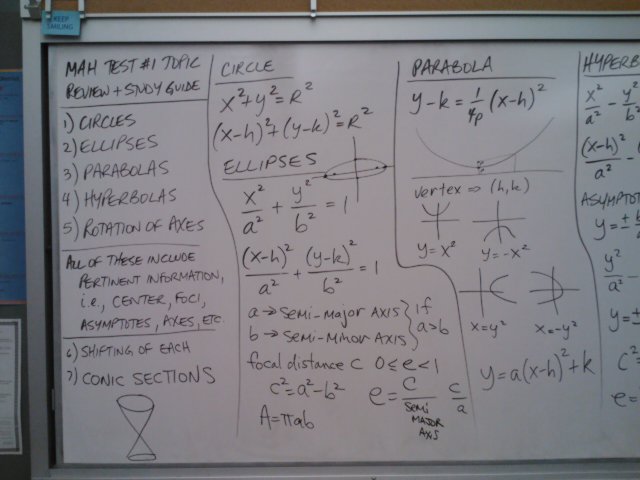 KEEP
SMILING
MAH TEST #1 TOPIC
REVIEW + STUDY GUIDE
1) CIRCLES
2) ELLIPSES
3) PARABOLAS
4) HYPERBOLAS
5) ROTATION OF AXES
ALL OF THESE INCLUDE
PERTINENT INFORMATION,
i.e., CENTER, FOCI,
ASYMPTOTES, AXES, ETC.
6) SHIFTING OF EACH
7) CONIC SECTIONS
CIRCLE
x²+y²=R²
(x-h)²+(y-k)²=R²
ELLIPSES
x²/a² + y²/b² = 1
(x-h)²/a² + (y-k)²/b² = 1
a → SEMI-MAJOR AXIS } if
b → SEMI-MINOR AXIS } a>b
focal distance c 0≤e<1
c²=a²-b² e = c/SEMI MAJOR AXIS c/a
A=πab
PARABOLA
y-k = 1/4p (x-h)²
vertex ⇒ (h,k)
y=x² y=-x²
x=y² x=-y²
y=a(x-h)²+k
HYPERB
x²/a² - y²/b²
(x-h)²/a² -
ASYMPTOT
y=±b
y²/a² -
y=±
c²=
e=